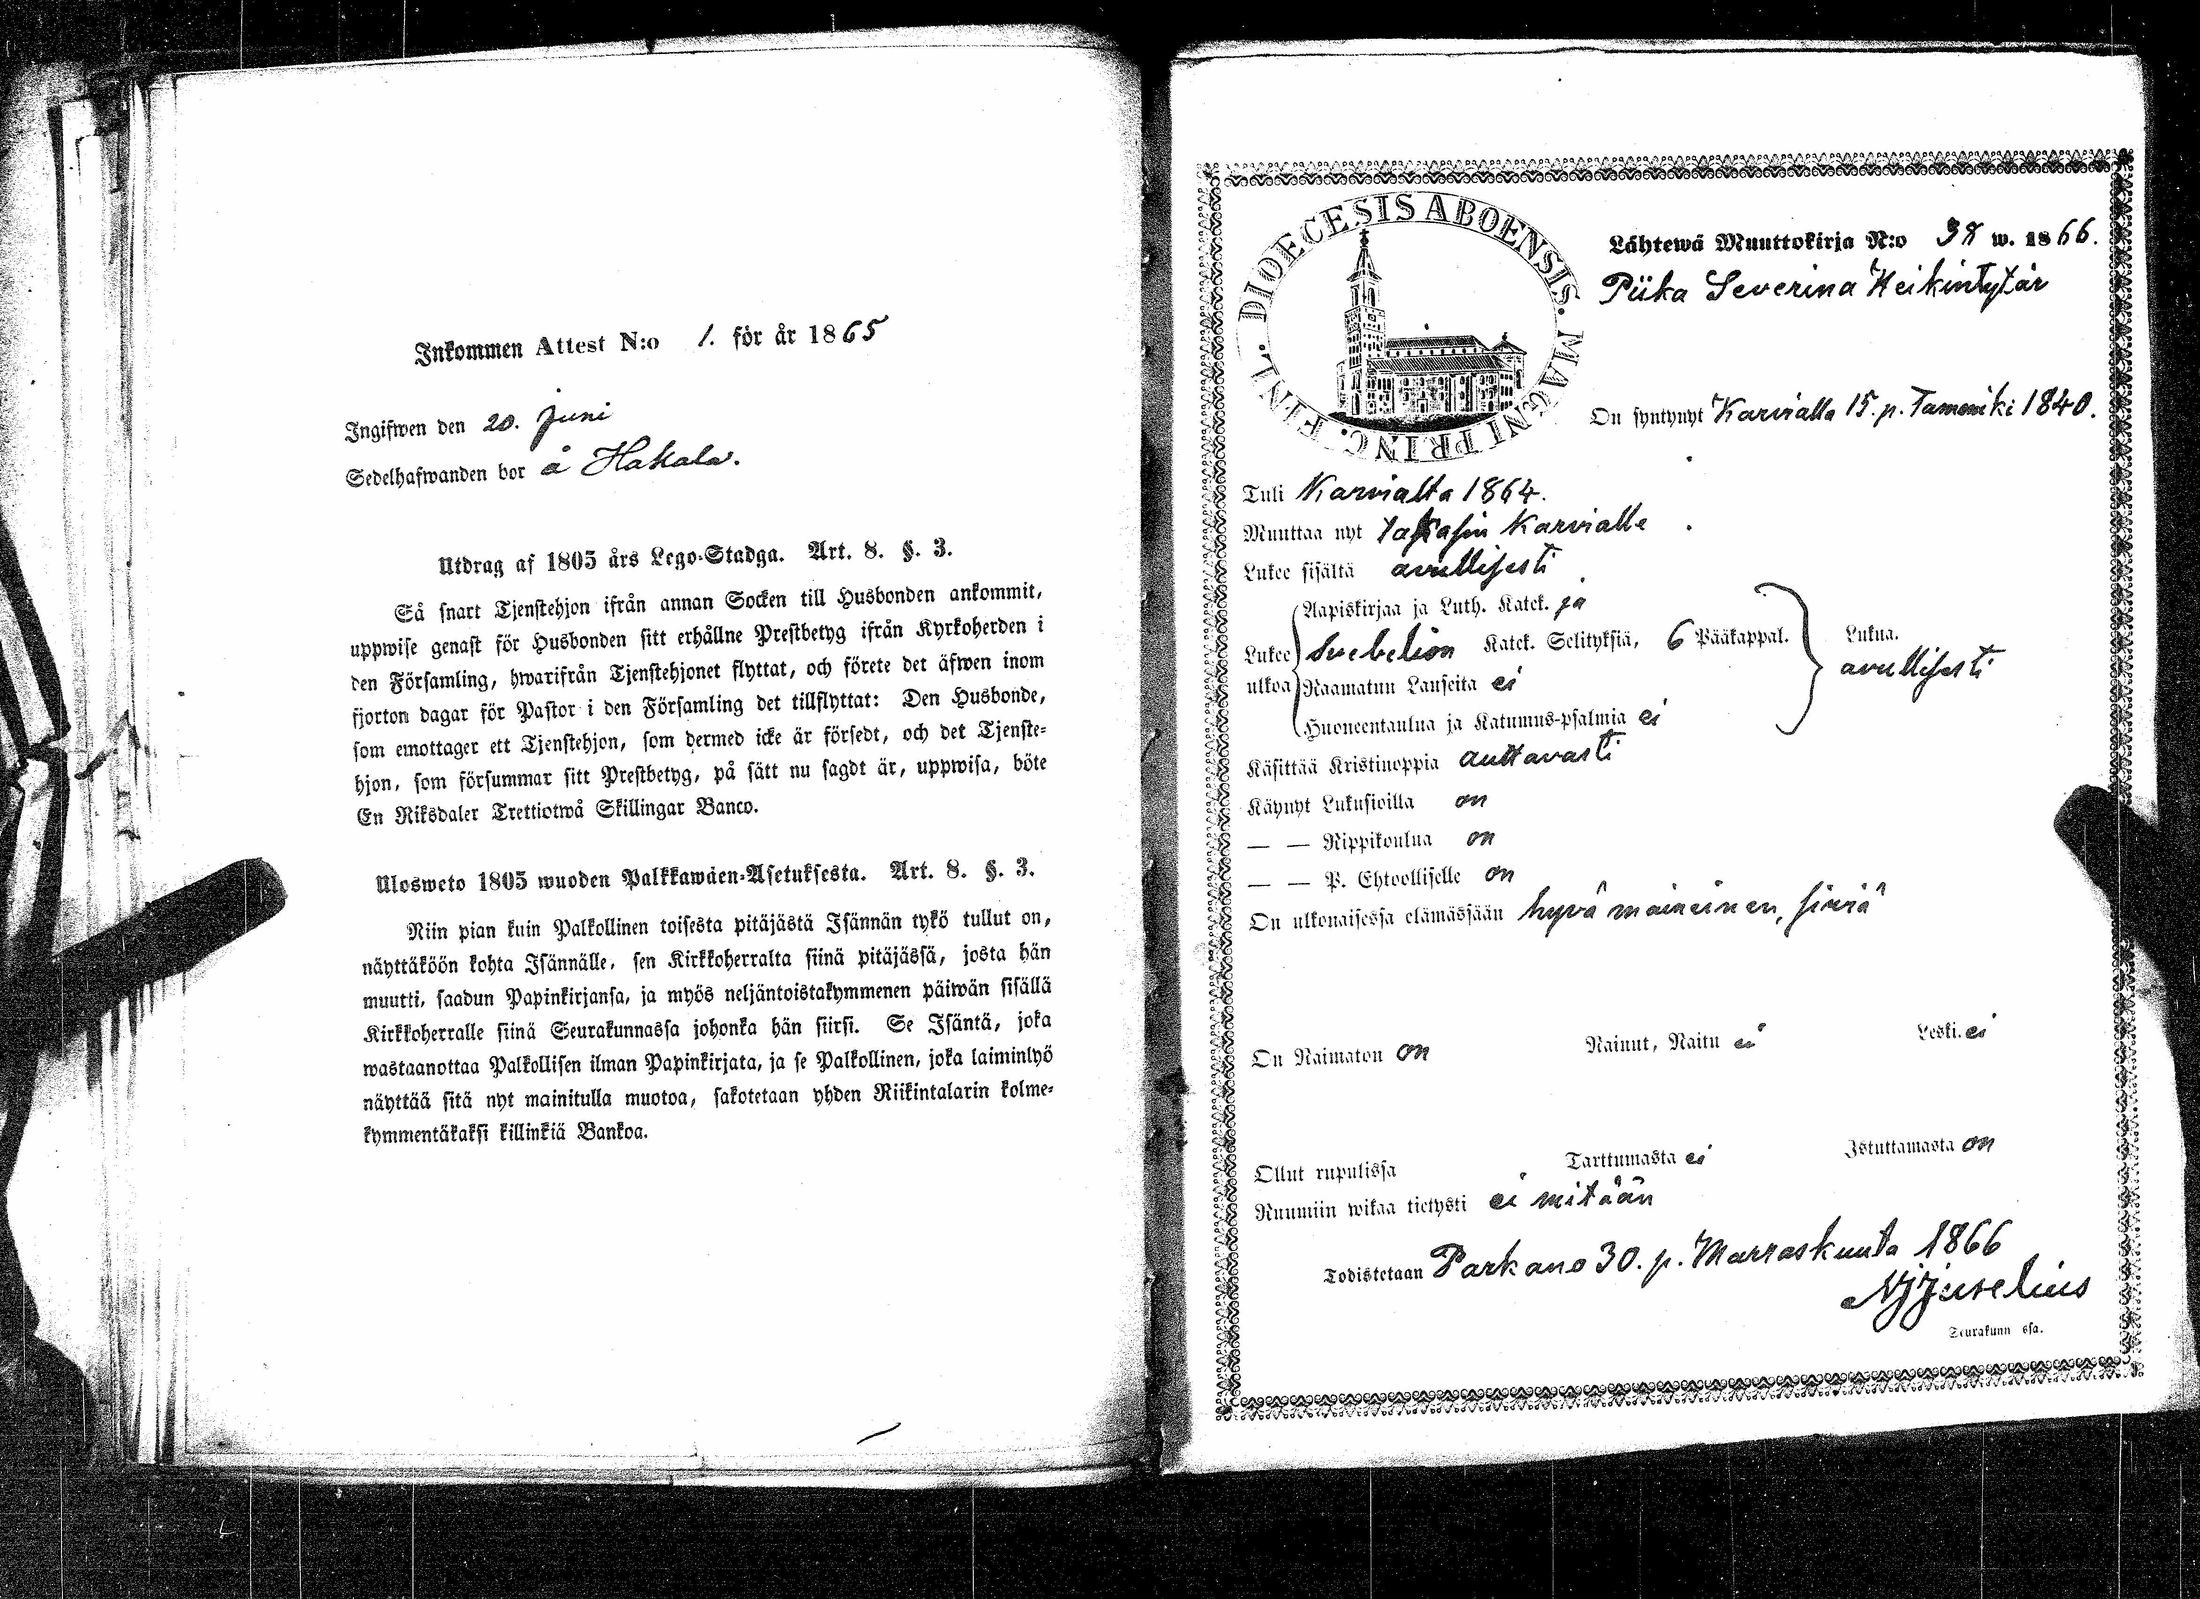 Inkommen Attest N:o 1. för år 1865
Ingifwen den 20. juni
Sedelhafwanden bor å Hakala.
Utdrag af 1805 års Lego-Stadga. Art. 8. §. 3.
Så snart Tjenstehjon ifrån annan Socken till Husbonden ankommit,
uppwise genast för Husbonden sitt erhållne Prestbetyg ifrån Kyrkoherden i
den Församling, hwarifrån Tjenstehjonet flyttat, och förete det äfwen inom
fjorton dagar för Pastor i den Församling det tillflyttat: Den Husbonde,
som emottager ett Tjenstehjon, som dermed icke är försedt, och det Tjenste-
hjon, som försummar sitt Prestbetyg, på sätt nu sagdt är, uppwisa, böte
En Riksdaler Trettiotwå Skillingar Banco.
Ulosweto 1805 wuoden Palkkawäen-Asetuksesta. Art. 8. §. 3.
Niin pian kuin Palkollinen toisesta pitäjästä Isännän tykö tullut on,
näyttäköön kohta Isännälle, sen Kirkkoherralta siinä pitäjässä, josta hän
muutti, saadun Papinkirjansa, ja myös neljäntoistakymmenen päiwän sisällä
Kirkkoherralle siinä Seurakunnassa johonka hän siirsi. Se Isäntä, joka
wastaanottaa Palkollisen ilman Papinkirjata, ja se Palkollinen, joka laiminlyö
näyttää sitä nyt mainitulla muotoa, sakotetaan yhden Riikintalarin kolme-
kymmentäkaksi killinkiä Bankoa.
DIOECESIS ABOENSIS. MAGNI PRINC. FINL.
Lähtewä Muuttokirja N:o 38 w. 1866.
Piika Severina Heikintytär
On syntynyt Karvialla 15. p. Tammiki 1840.
Tuli Karvialta 1864.
Muuttaa nyt takasin Karvialle
Lukee sisältä avullisesti
Aapiskirjaa ja Luth. Katek. ja
Lukee ulkoa Svebelion Katek. Selityksiä, 6 Pääkappal.
Raamatun Lauseita ei
Huoneentaulua ja Katumus-psalmia ei
Lukua.
avullisesti
Käsittää Kristinoppia auttavasti
Käynyt Lukusioilla on
— — Rippikoulua on
— — P. Ehtoolliselle on
On ulkonaisessa elämässään hyvä maineinen, siviä
On Naimaton on Nainut, Naitu ei Leski. ei
Ollut rupulissa Tarttumasta ei Istuttamasta on
Ruumiin wikaa tietysti ei mitään
Todistetaan Parkano 30. p. Marraskuuta 1866
Juselius
Seurakunn ssa.